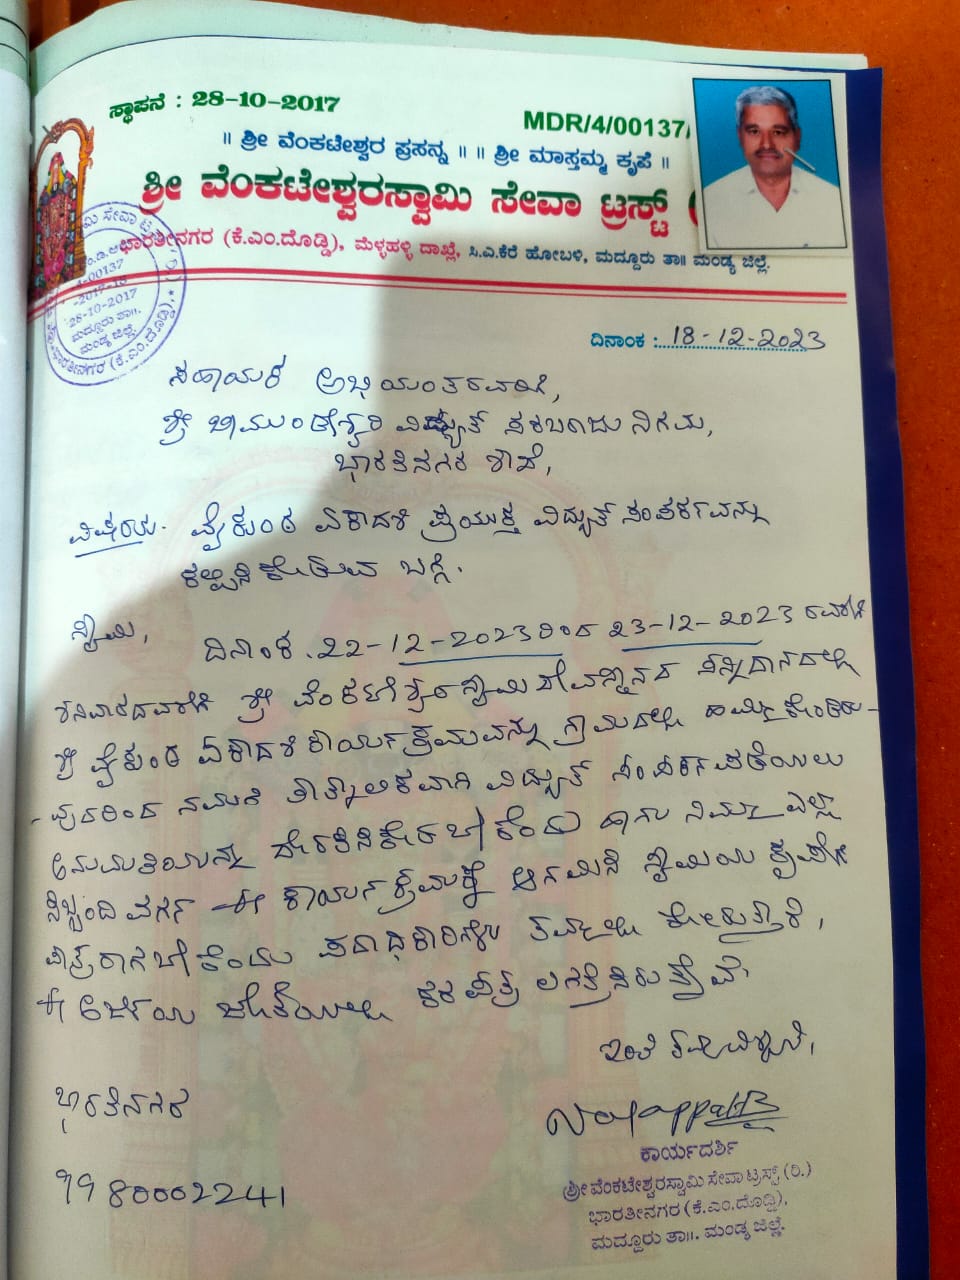 ಸ್ಥಾಪನೆ : 28-10-2017
MDR/4/00137/
॥ ಶ್ರೀ ವೆಂಕಟೇಶ್ವರ ಪ್ರಸನ್ನ ॥ ॥ ಶ್ರೀ ಮಾಸ್ತಮ್ಮ ಕೃಪೆ ॥
ಶ್ರೀ ವೆಂಕಟೇಶ್ವರಸ್ವಾಮಿ ಸೇವಾ ಟ್ರಸ್ಟ್ (
ಭಾರತೀನಗರ (ಕೆ.ಎಂ.ದೊಡ್ಡಿ), ಮೆಳ್ಳಹಳ್ಳಿ ದಾಖ್ಲೆ, ಸಿ.ಎ.ಕೆರೆ ಹೋಬಳಿ, ಮದ್ದೂರು ತಾ॥ ಮಂಡ್ಯ ಜಿಲ್ಲೆ.
-00137
28-10-2017
ಮದ್ದೂರು ತಾ॥.
ಮಂಡ್ಯ ಜಿಲ್ಲೆ.
ಭಾರತೀನಗರ (ಕೆ.ಎಂ.ದೊಡ್ಡಿ)
ದಿನಾಂಕ : 18-12-2023
ಸಹಾಯಕ ಅಭಿಯಂತರವರಿಗೆ,
ಶ್ರೀ ಚಾಮುಂಡೇಶ್ವರಿ ವಿದ್ಯುತ್ ಸರಬರಾಜು ನಿಗಮ,
ಭಾರತಿನಗರ ಶಾಖೆ,
ವಿಷಯ: ವೈಕುಂಠ ಏಕಾದಶಿ ಪ್ರಯುಕ್ತ ವಿದ್ಯುತ್ ಸಂಪರ್ಕವನ್ನು
ಕಲ್ಪಿಸಿಕೊಡುವ ಬಗ್ಗೆ.
ಸ್ವಾಮಿ,
ದಿನಾಂಕ .22-12-2023ರಿಂದ 23-12-2023 ರವರೆಗೆ
ಶನಿವಾರದವರೆಗೆ ಶ್ರೀ ವೆಂಕಟೇಶ್ವರಸ್ವಾಮಿ ದೇವಸ್ಥಾನದ ಸನ್ನಿಧಾನದಲ್ಲಿ
ಶ್ರೀ ವೈಕುಂಠ ಏಕಾದಶಿ ಕಾರ್ಯಕ್ರಮವನ್ನು ಗ್ರಾಮದಲ್ಲಿ ಹಮ್ಮಿಕೊಂಡಿರು-
-ವುದರಿಂದ ನಮಗೆ ತಾತ್ಕಾಲಿಕವಾಗಿ ವಿದ್ಯುತ್ ಸಂಪರ್ಕ ಪಡೆಯಲು
ಅನುಮತಿಯನ್ನು ಹಾಗೂ ನಿಮ್ಮ ಎಲ್ಲಾ
ಸಿಬ್ಬಂದಿ ವರ್ಗ ಈ ಕಾರ್ಯಕ್ರಮಕ್ಕೆ ಆಗಮಿಸಿ ಸ್ವಾಮಿಯ ಕೃಪೆಗೆ
ಪಾತ್ರರಾಗಬೇಕೆಂದು ತಮ್ಮಲ್ಲಿ
ಈ ಅರ್ಜಿಯ ಜೊತೆಯಲ್ಲಿ ಕರ ಪತ್ರ ಲಗತ್ತಿಸಿರುತ್ತೇವೆ.
ಇಂತಿ ತಮ್ಮ ವಿಶ್ವಾಸಿ,
ಭಾರತಿನಗರ
9980002241
ಕಾರ್ಯದರ್ಶಿ
ಶ್ರೀ ವೆಂಕಟೇಶ್ವರಸ್ವಾಮಿ ಸೇವಾ ಟ್ರಸ್ಟ್ (ರಿ.)
ಭಾರತೀನಗರ (ಕೆ.ಎಂ.ದೊಡ್ಡಿ),
ಮದ್ದೂರು ತಾ॥. ಮಂಡ್ಯ ಜಿಲ್ಲೆ.